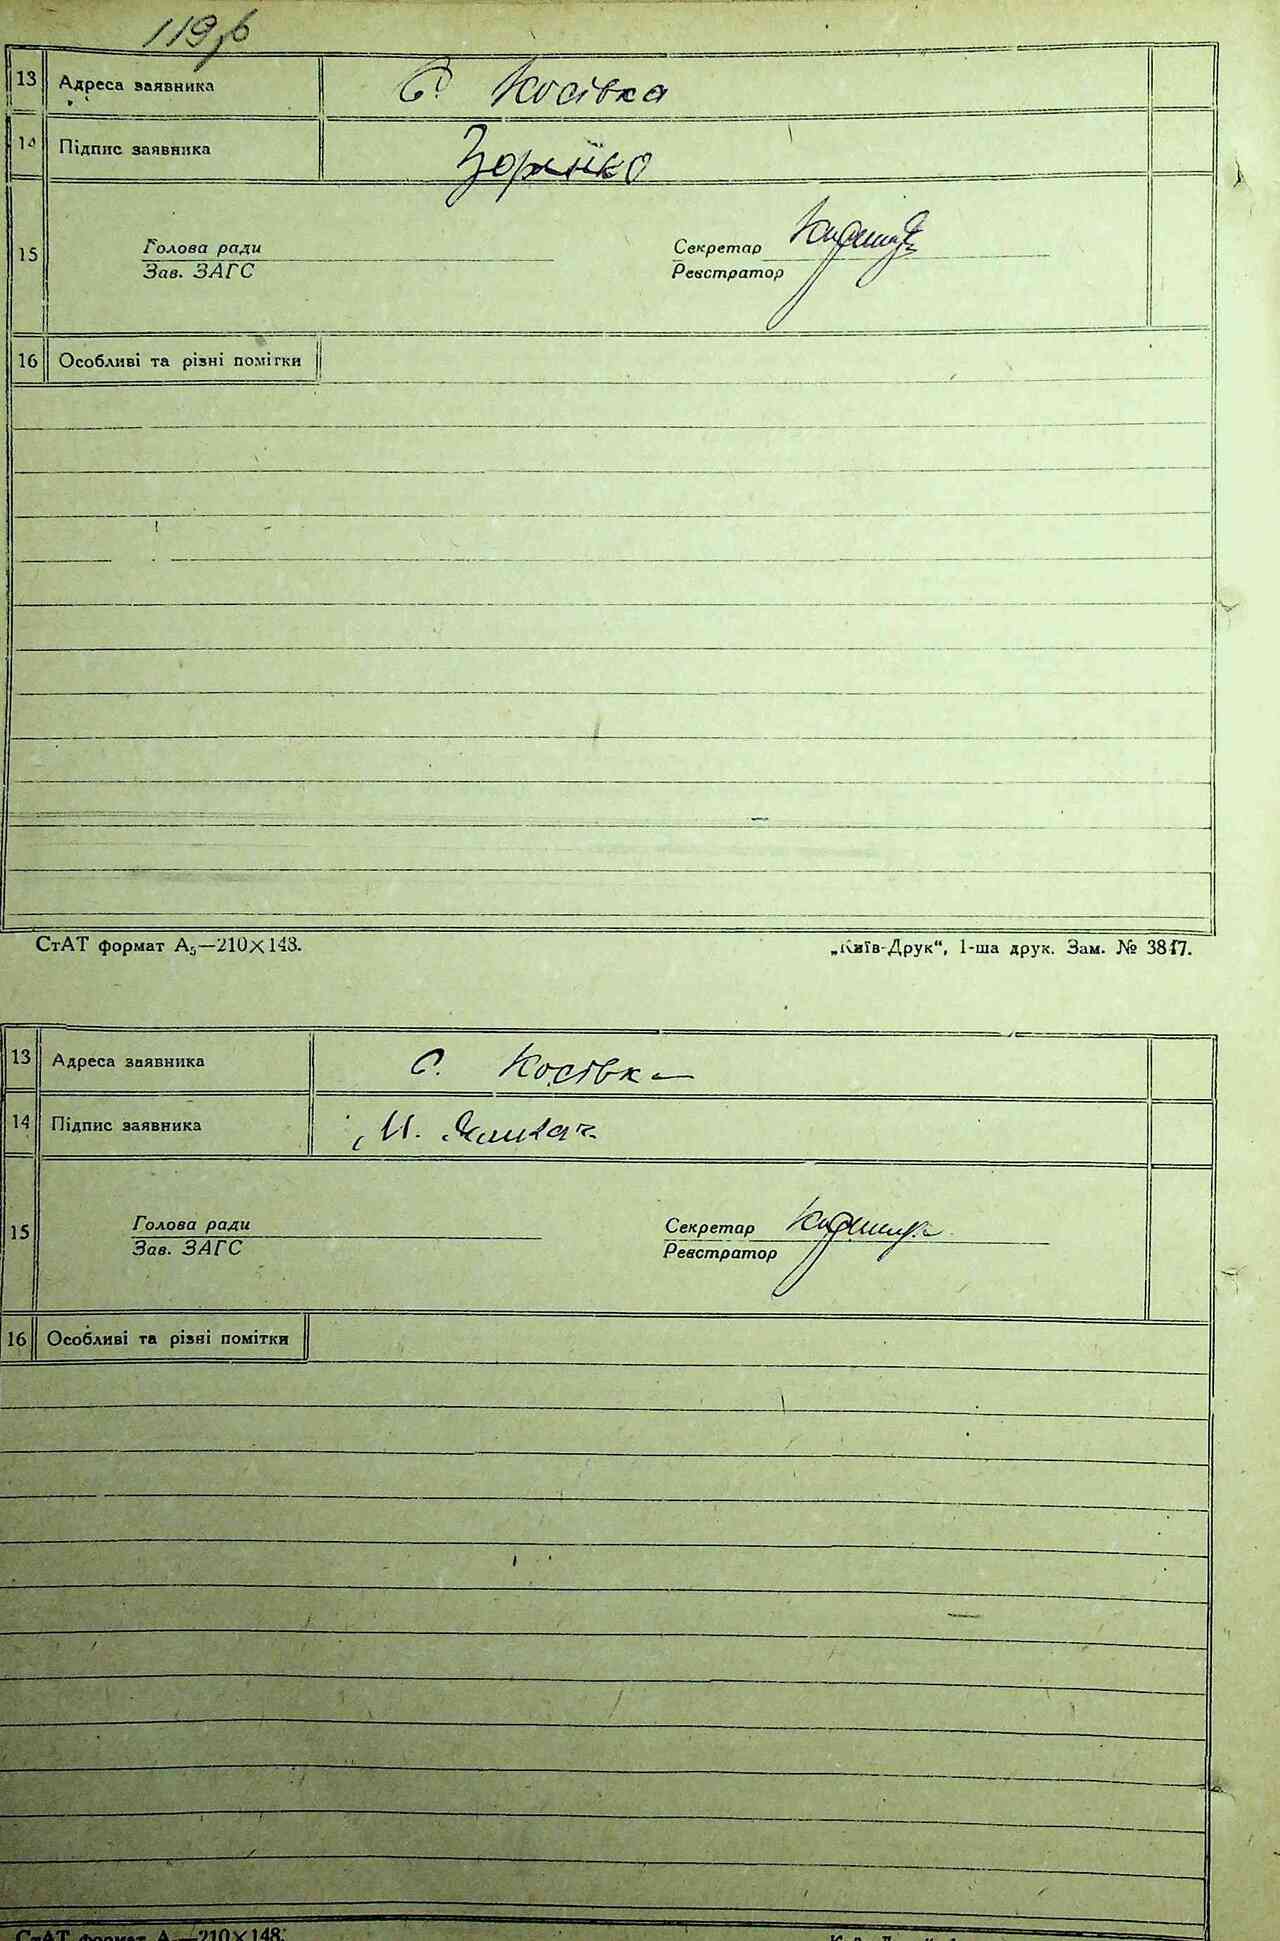 119,б
13 Адреса заявника С. Косівка
14 Підпис заявника Зорінко
15 Голова ради Секретар
Зав. ЗАГС Реєстратор
16 Особливі та різні помітки
СтАТ формат А5—210×148. „Київ-Друк“, 1-ша друк. Зам. № 3817.
13 Адреса заявника С. Косівка
14 Підпис заявника
15 Голова ради Секретар
Зав. ЗАГС Реєстратор
16 Особливі та різні помітки
СтАТ формат А5—210×148.